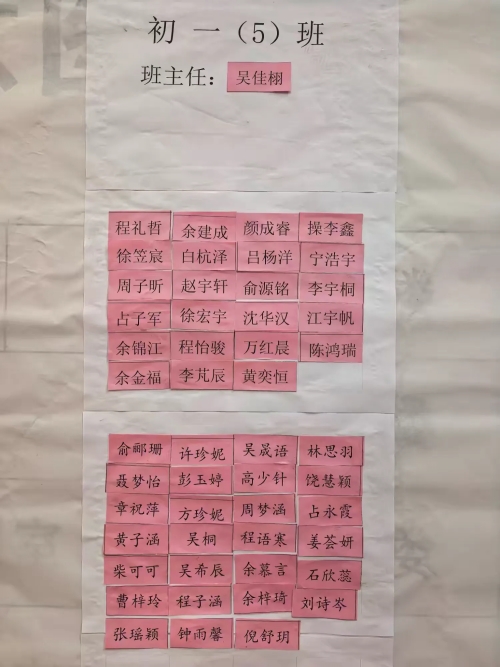 初一（5）班
班主任：吴佳栩
程礼哲 余建成 颜成睿 操李鑫
徐笠宸 白杭泽 吕杨洋 宁浩宇
周子昕 赵宇轩 俞源铭 李宇桐
占子军 徐宏宇 沈华汉 江宇帆
余锦江 程怡骏 万红晨 陈鸿瑞
余金福 李芃辰 黄奕恒
俞郦珊 许珍妮 吴晟语 林思羽
聂梦怡 彭玉婷 高少针 饶慧颖
章祝萍 方珍妮 周梦涵 占永霞
黄子涵 吴桐 程语寒 姜荟妍
柴可可 吴希辰 余慕言 石欣蕊
曹梓玲 程子涵 余梓琦 刘诗岑
张瑶颖 钟雨馨 倪舒玥